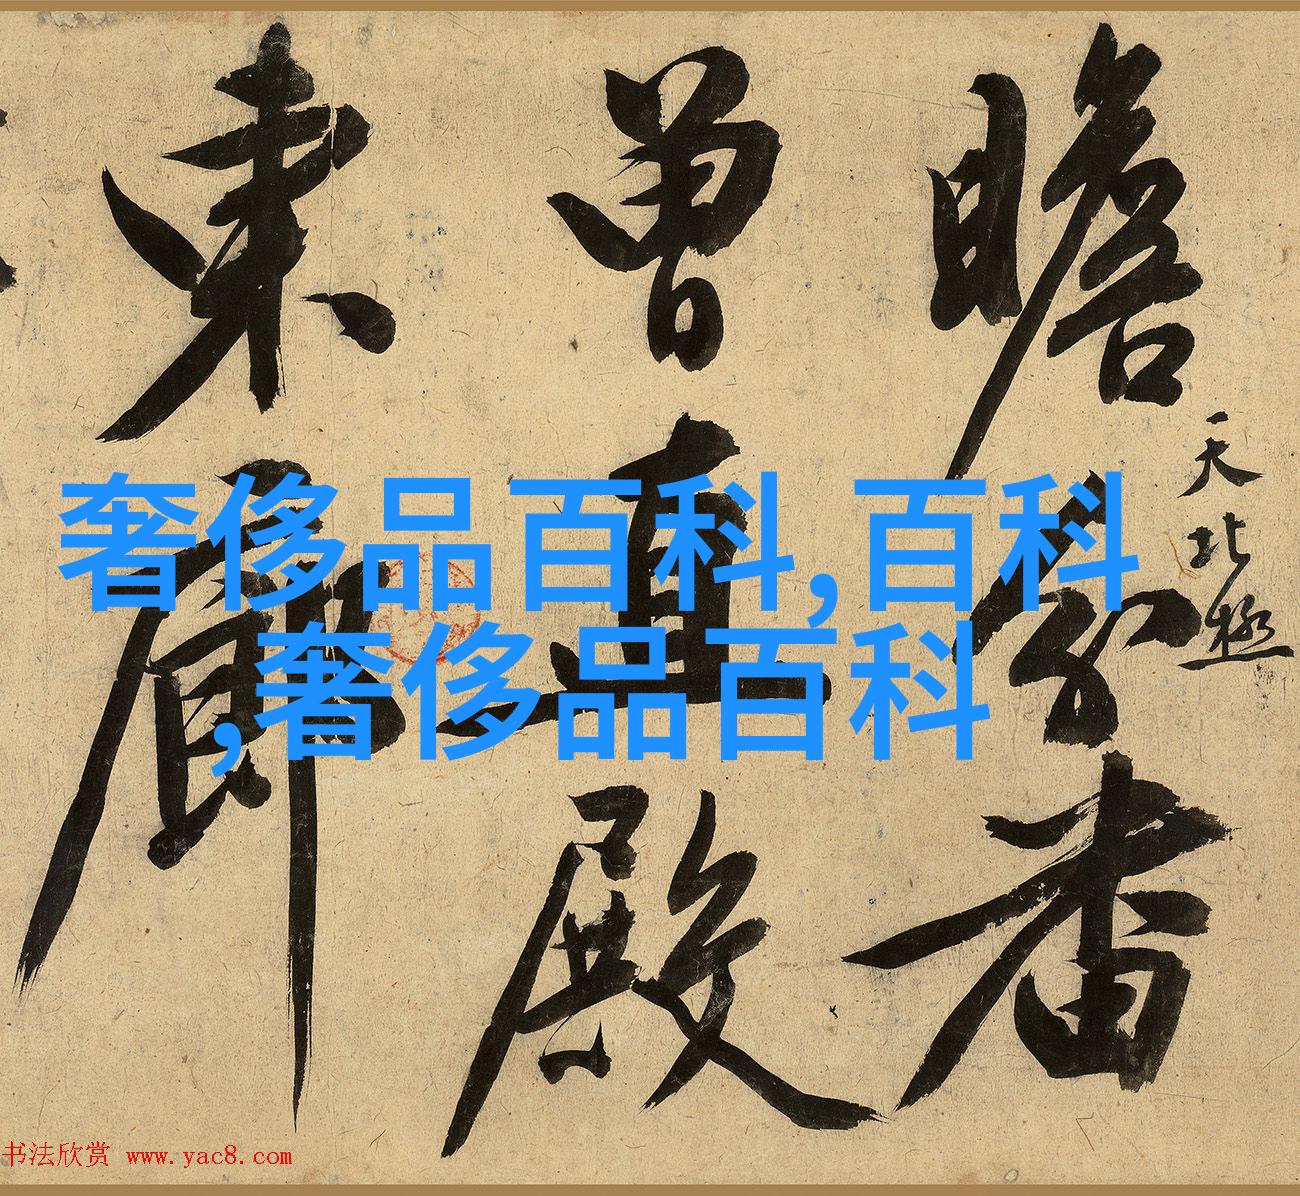 瞻
天北極
曾直殿
東
奢侈品百科,百科
,奢侈品百科
书法欣赏 www.yac8.com